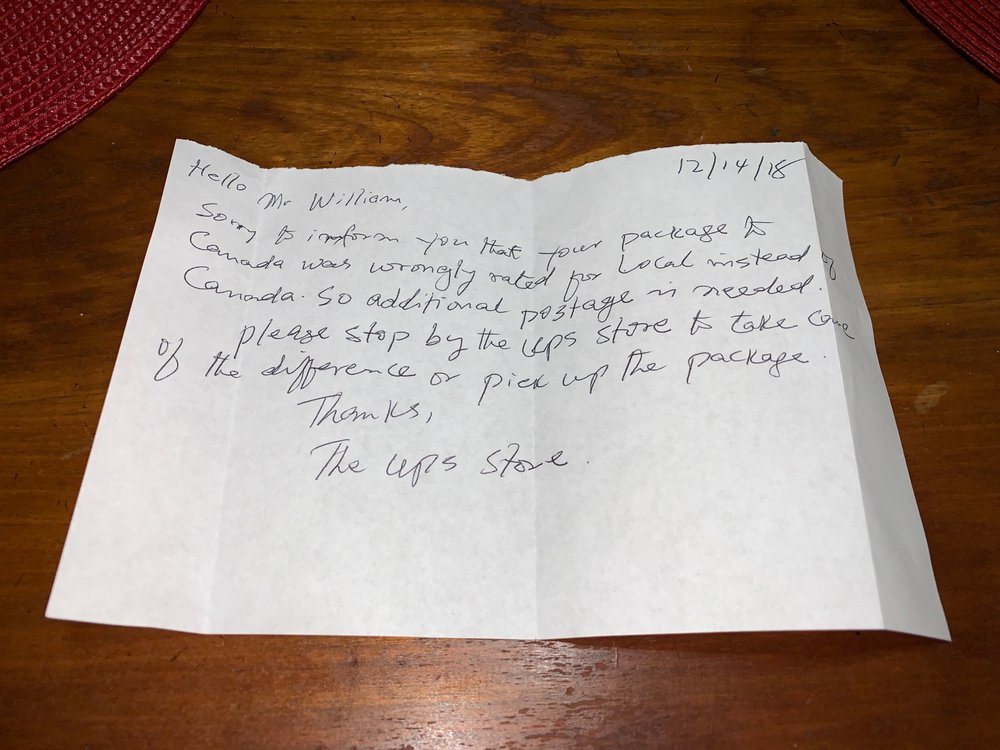 12/14/18
Hello Mr William,
Sorry to inform you that your package to
Canada was wrongly rated for Local instead of
Canada. So additional postage is needed.
please stop by the ups store to take care
of the difference or pick up the package.
Thanks,
The ups store.